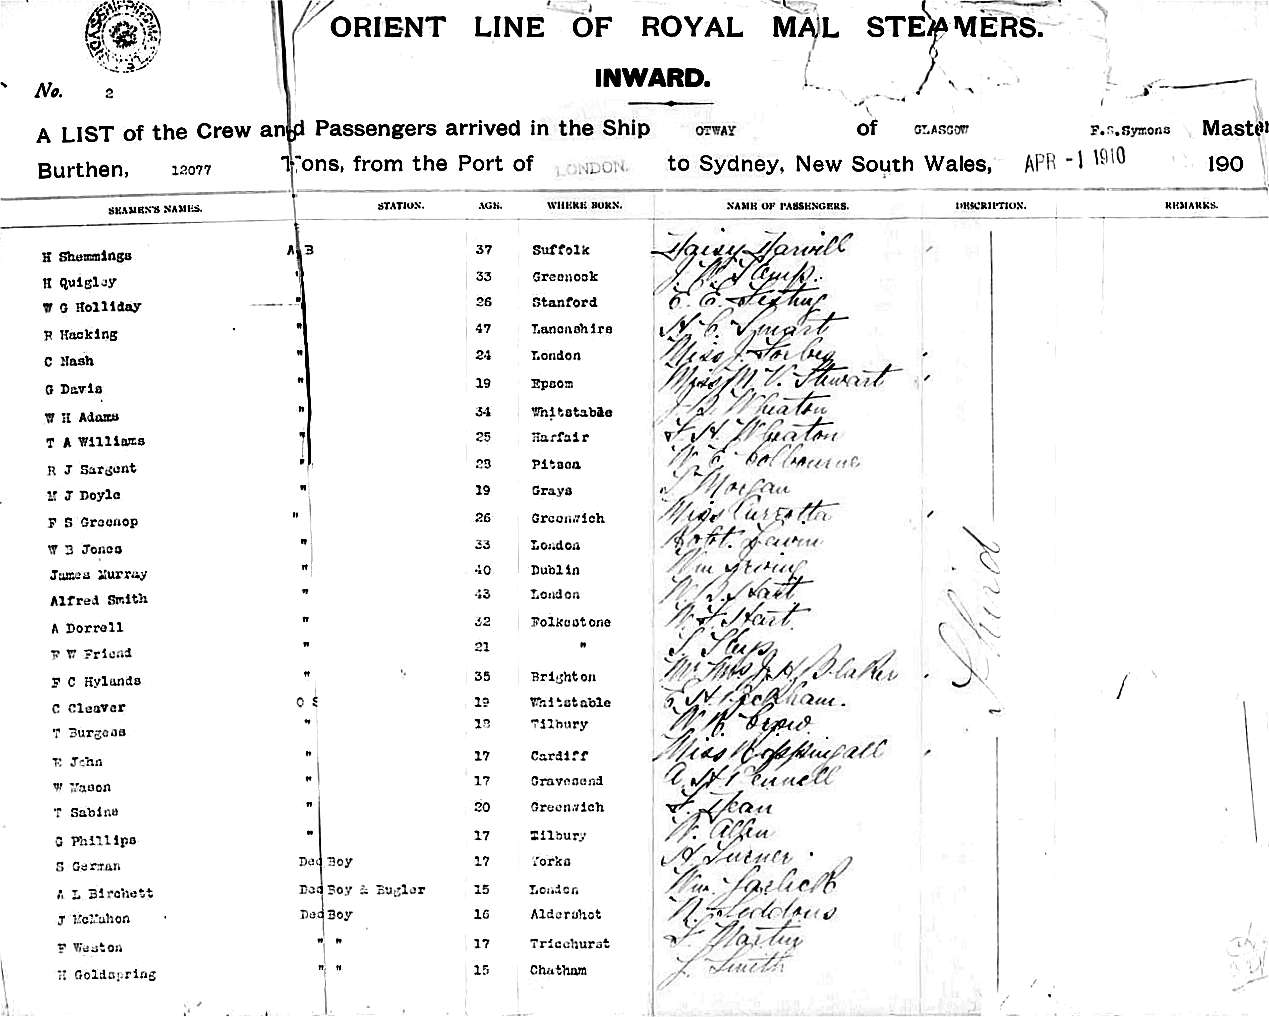 ORIENT LINE OF ROYAL MAIL STEAMERS.
INWARD.
No. 2
A LIST of the Crew and Passengers arrived in the Ship OTWAY of GLASGOW F.S.Symons Master
Burthen, 12077 Tons, from the Port of LONDON. to Sydney, New South Wales, APR -1 1910 190
SEAMEN'S NAMES. STATION. AGE. WHERE BORN. NAME OF PASSENGERS. DESCRIPTION. REMARKS.
H Shemmings A B 37 Suffolk Daisy Harvill
H Quigley " 33 Greenock J. W.
W G Holliday " 26 Stanford E. E.
R Hacking " 47 Lancashire H. C. Smart
C Nash " 24 London Miss J. Forbes
G Davis " 19 Epsom Miss M. V. Stewart
W H Adams " 34 Whitstable J. B. Wheaton
T A Williams " 25 Harfair F. H. Wheaton
R J Sargent " 23 Pitsea W. E. Colbourne
M J Doyle " 19 Grays Morgan
F S Greenop " 26 Greenwich Miss
W B Jones " 33 London Robt.
James Murray " 40 Dublin Wm Irving
Alfred Smith " 43 London W. B. Hart
A Dorrell " 32 Folkestone W. F. Hart
F W Friend " 21 "
F C Hylands " 35 Brighton Mr Mrs J. H. Blaker
C Cleaver O S 19 Whitstable E. H. Peckham.
T Burgess " 18 Tilbury W. K.
E John " 17 Cardiff Miss Koppingall
W Mason " 17 Gravesend A. H. Pennell
T Sabine " 20 Greenwich F. Dean
G Phillips " 17 Tilbury W. Allen
S German Deck Boy 17 Yorks A Turner
A L Birchett Deck Boy & Bugler 15 London Wm. Garlick
J McMahon Deck Boy 16 Aldershot R. Seddons
F Weston " " 17 Ticehurst F. Martin
H Goldspring " " 15 Chatham J. Smith
Third